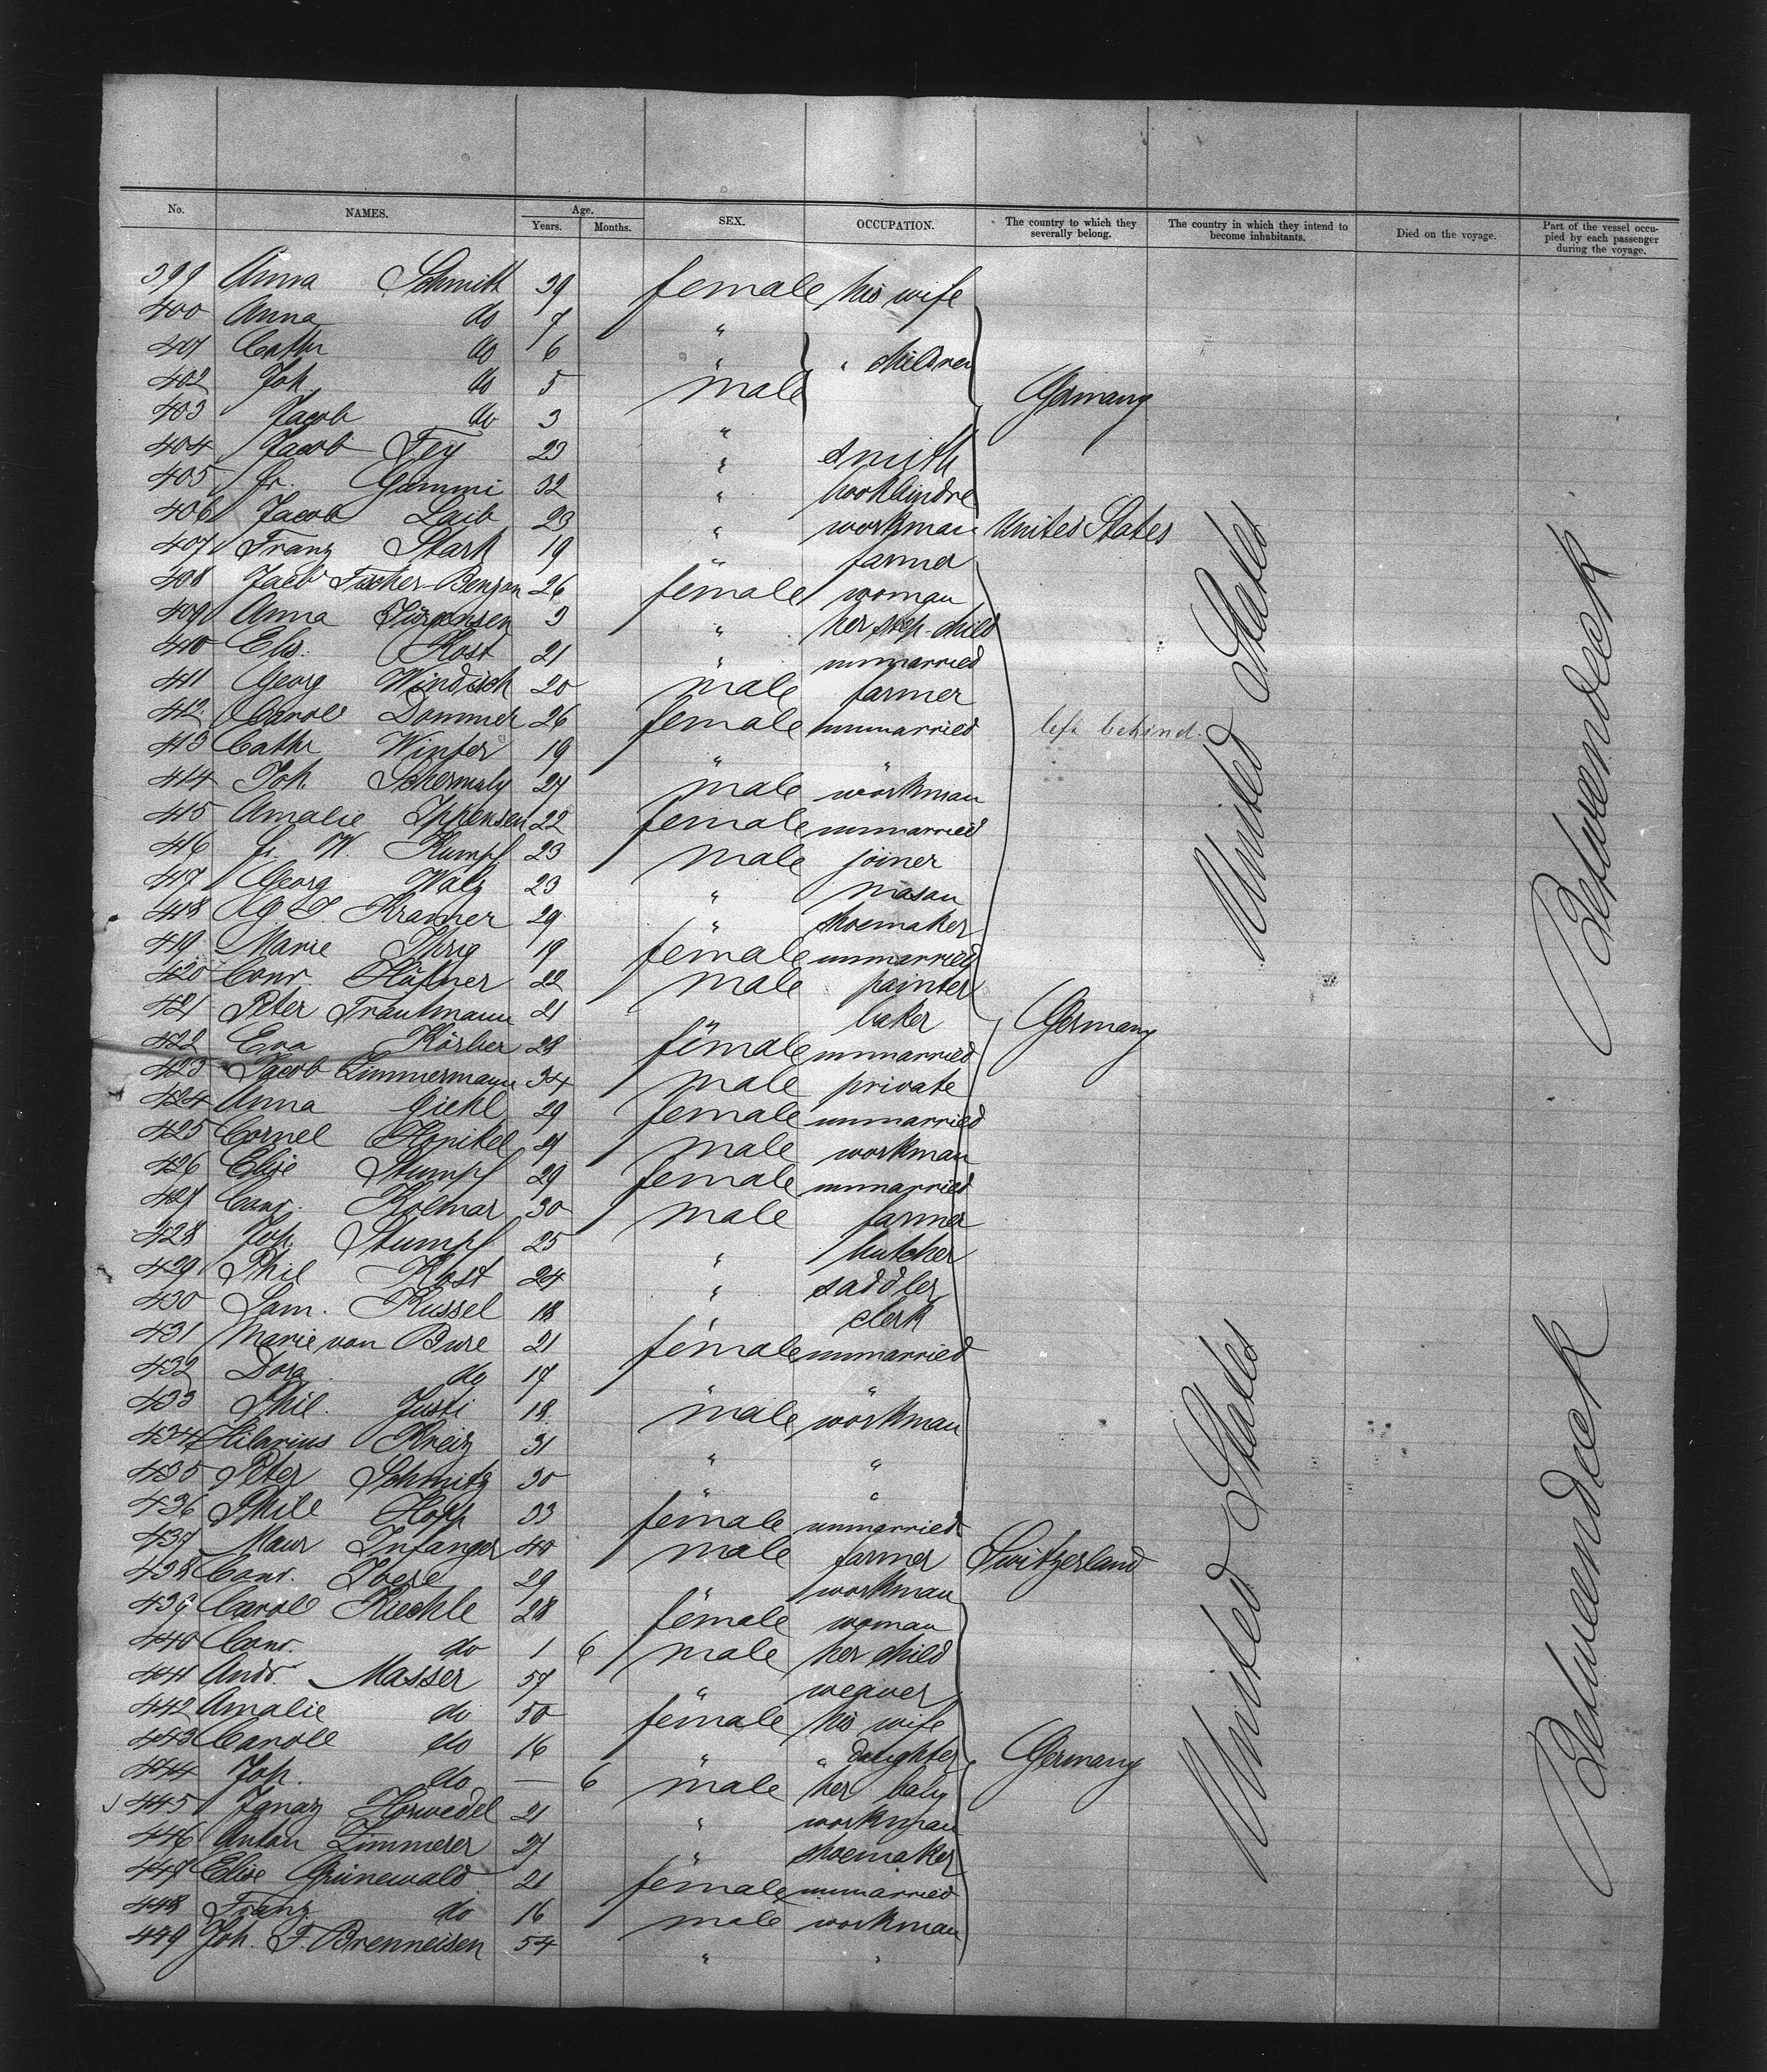 No. NAMES. Age. Years. Months. SEX. OCCUPATION. The country to which they severally belong. The country in which they intend to become inhabitants. Died on the voyage. Part of the vessel occupied by each passenger during the voyage.
399 Anna Schmitt 39 female his wife
400 Anna do 7 "
401 Cathr do 6 " " children
402 Joh. do 5 male Germany
403 Jacob do 3 "
404 Jacob Fey 23 " smith
405 fr. Gammi 32 " bookbindre
406 Jacob Laib 23 " workman United States
407 Franz Stark 19 farmer
408 Jacb Fischer-Benzon 26 female woman
409 Anna Jürgensen 3 " her step-child
410 Elis. Kost 21 " unmarried
411 Georg Windisch 20 male farmer
412 Carole Dommer 26 female unmarried left behind.
413 Cathr Winter 19 " "
414 Joh. Schermuly 27 male workman
415 Amalie Ippensen 22 female unmarried
416 fr. W. Kumpf 23 male joiner
417 Georg Walz 23 " mason
418 Ag J. Kramer 29 " shoemaker
419 Marie Ihrig 19 female unmarried
420 Conr. Häfner 22 male painter
421 Peter Trautmann 21 " baker Germany
422 Eva Körber 28 female unmarried
423 Jacob Zimmermann 34 male private
424 Anna Giehl 29 female unmarried
425 Cornel Honikel 27 male workman
426 Elise Stumpf 29 female unmarried
427 Conr. Kolmar 30 male farmer
428 Joh. Stumpf 25 " butcher
429 Phil Kost 24 " saddler
430 Sam. Kussel 18 " clerk
431 Marie van Bure 21 female unmarried
432 Dora do 17 " "
433 Phil. Justi 18 male workman
434 Hilarius Kreiz 31 " "
435 Peter Schmitz 30 " "
436 Phile Hopp 33 female unmarried
437 Maur Infanger 40 male farmer Switzerland
438 Conr. Loese 29 " workman
439 Carole Kiechle 28 female woman
440 Conr. do 1 6 male her child
441 Andr. Masser 57 " weaver
442 Amalie do 50 female his wife
443 Carole do 16 " " daughter Germany
444 Joh. do — 6 male her baby
445 Ignaz Horwedel 21 " workman
446 Anton Zimmerer 27 " shoemaker
447 Elise Grünewald 21 female unmarried
448 Franz do 16 male workman
449 Joh. F. Brenneisen 54 " "
United States
United States
Betweendeck
Betweendeck